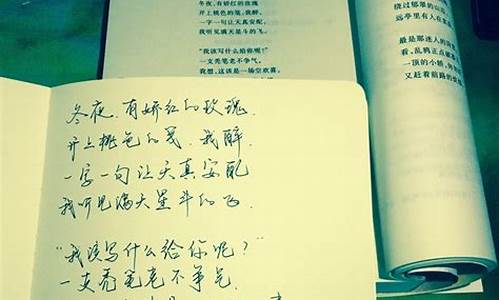 冬夜，有娇红的玫瑰
开上桃色的笺，我醉，
一字一句让天真安配，
我听见满天星斗的飞。
“我该写什么给你呢？”
一支秃笔老不争气。
我想，这该是一场空欢喜，
绕过郁翠的山
远亭里有人在
最是那迷人的
看，乱鸦正点破
一顶的小轿，
又赶着前路的
冬夜，有娇红的玫瑰
开上桃色的笺，我醉，
一字一句让天真安配
我听见满天星斗的飞.
“我该写什么给你呢？”
一支秃笔老不争气.